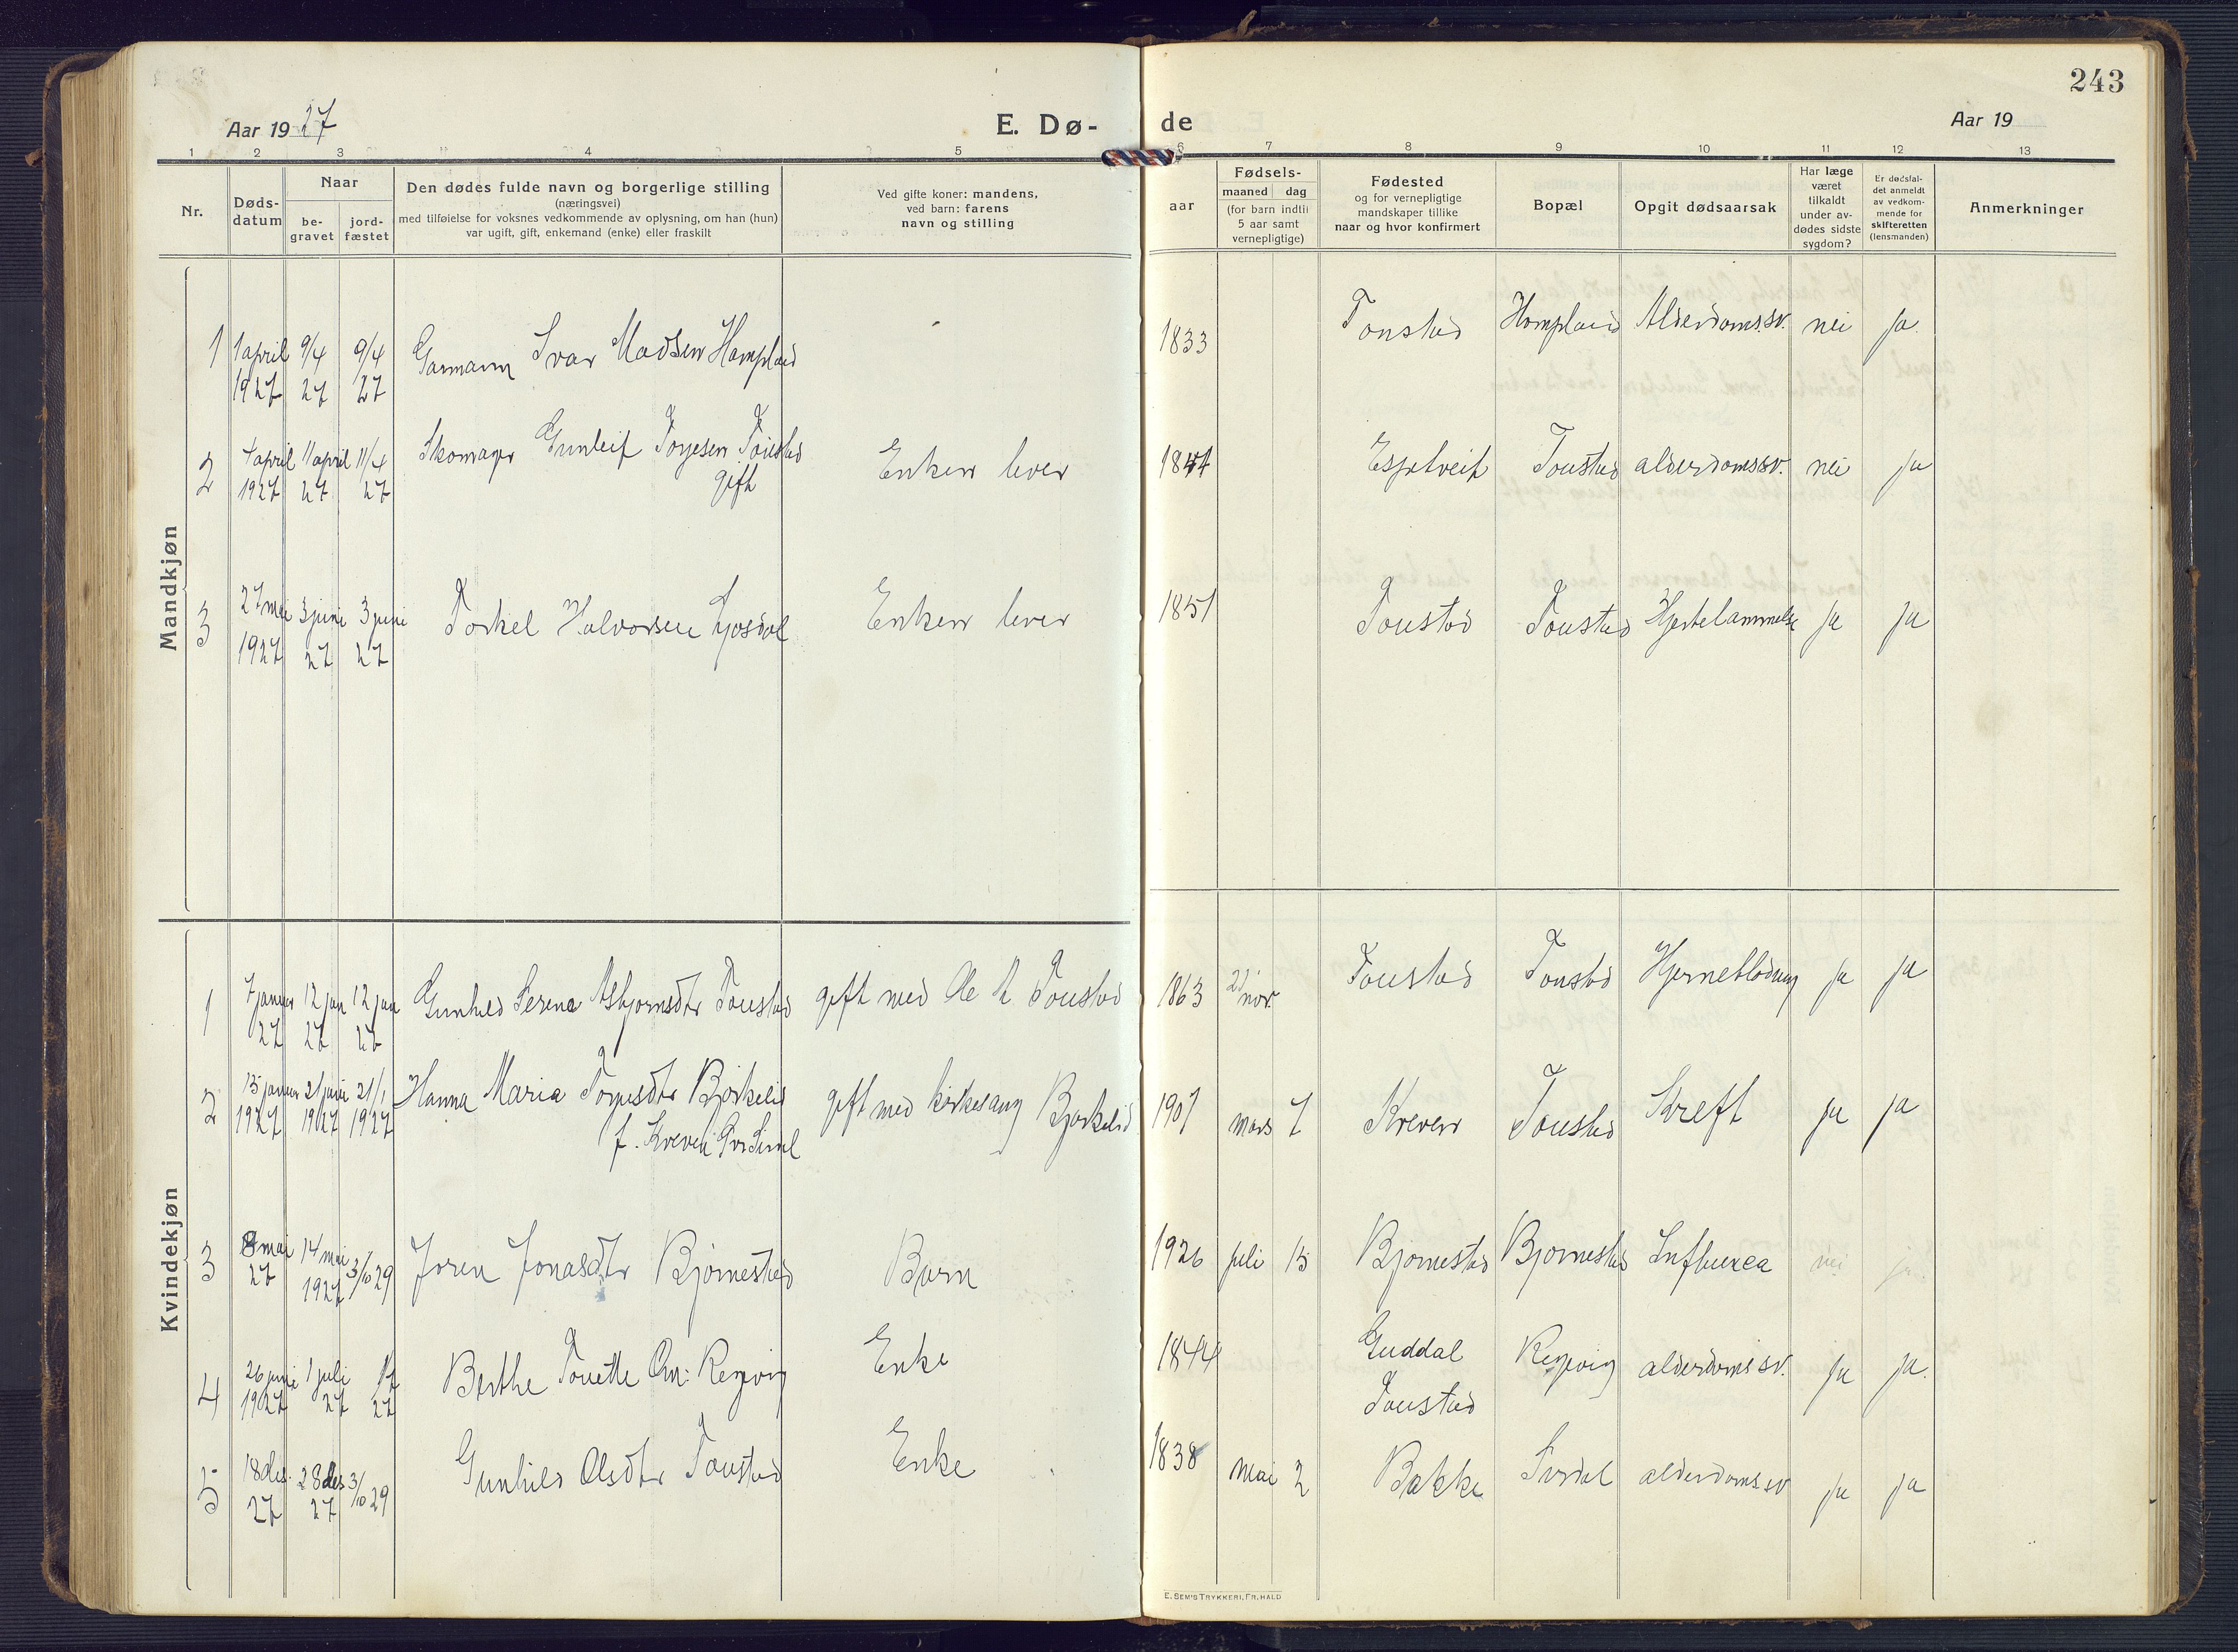 243
Aar 1927
E. Dø-
de
Aar 19
1 2 3 4 5 6 7 8 9 10 11 12 13
Nr.
Døds-
datum
Naar
be-
gravet
jord-
fæstet
Den dødes fulde navn og borgerlige stilling
(næringsvei)
med tilføielse for voksnes vedkommende av oplysning, om han (hun)
var ugift, gift, enkemand (enke) eller fraskilt
Ved gifte koner: mandens,
ved barn: farens
navn og stilling
aar
Fødsels-
maaned dag
(for barn indtil
5 aar samt
vernepligtige)
Fødested
og for vernepligtige
mandskaper tillike
naar og hvor konfirmert
Bopæl
Opgit dødsaarsak
Har læge
været
tilkaldt
under av-
dødes sidste
sygdom?
Er dødsfal-
det anmeldt
av vedkom-
mende for
skifteretten
(lensmanden)
Anmerkninger
Mandkjøn
1 1 april 9/4 9/4 Gaardmann Ivar Madsen Hompland 1833 Tonstad Hompland Alderdomssv. nei ja
1927 27 27
2 4 april 11 april 11/4 Skomager Gunleif Torjesen Tonstad Enken lever 1844 Espetveit Tonstad alderdomssv. nei ja
1927 27 27 gift
3 27 mai 3 juni 3 juni Torkel Halvorsen Josdal Enken lever 1851 Tonstad Tonstad Hjertelammelse ja ja
1927 27 27
Kvindekjøn
1 7 januar 12 jan 12 jan Gunhild Serena Asbjørnsdtr Tonstad gift med Ole A Tonstad 1863 nov. Tonstad Tonstad Hjerneblødning ja ja
27 27 27
2 15 januar 21 21/1 Hanna Maria Torjesdtr Bjørkelid gift med kirkesang Bjørkelid 1907 mars 7 Kreven Tonstad Kreft ja ja
1927 1927 1927 f. Kreven
3 8 mai 14 mai 3/10 29 Joren Jonasdtr Bjørnestad Barn 1926 juli 15 Bjørnestad Bjørnestad Influenca nei ja
27 1927
4 26 juni 1 juli 1/7 Berthe Tonette Regevig Enke 1844 Guddal Regevig alderdomssv. ja ja.
1927 27 27 Tonstad
5 18 des. 28 des 3/10 29 Gunhild Olsdtr Tonstad Enke 1838 mai 2 Bakke Sirdal alderdomssv ja ja
27 27
E. SEM'S TRYKKERI, FR. HALD